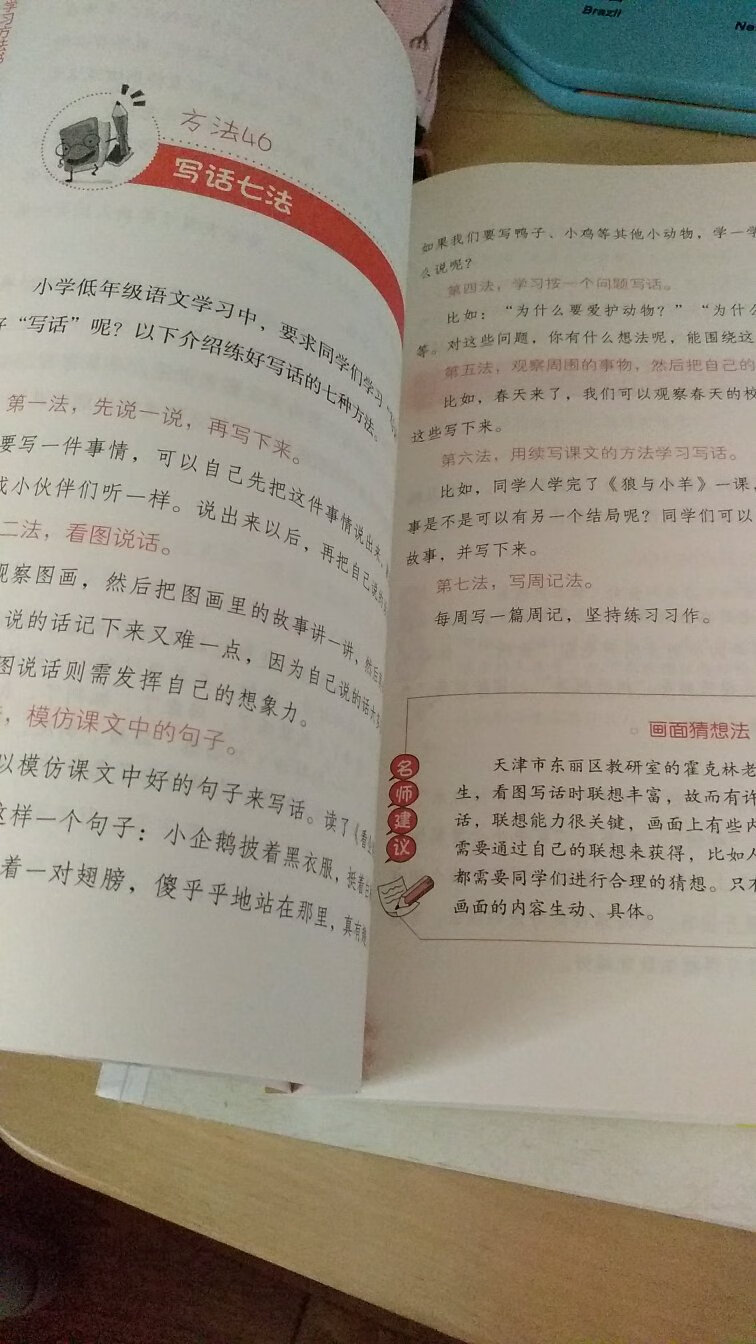 学习方法
方法46
写话七法
小学低年级语文学习中，要求同学们学习
好“写话”呢？以下介绍练好写话的七种方法。
第一法，先说一说，再写下来。
要写一件事情，可以自己先把这件事情说出来，
小伙伴们听一样。说出来以后，再把自己说的
二法，看图说话。
观察图画，然后把图画里的故事讲一讲，然后
说的话记下来又难一点，因为自己说的话
图说话则需发挥自己的想象力。
，模仿课文中的句子。
以模仿课文中好的句子来写话。读了《
这样一个句子：小企鹅披着黑衣服，挺着
着一对翅膀，傻乎乎地站在那里，真有
如果我们要写鸭子、小鸡等其他小动物，学一学
么说呢？
第四法，学习按一个问题写话。
比如：“为什么要爱护动物？”“为什么
等。对这些问题，你有什么想法呢，能围绕这
第五法，观察周围的事物，然后把自己的
比如，春天来了，我们可以观察春天的校
这些写下来。
第六法，用续写课文的方法学习写话。
比如，同学人学完了《狼与小羊》一课，
事是不是可以有另一个结局呢？同学们可以
故事，并写下来。
第七法，写周记法。
每周写一篇周记，坚持练习习作。
画面猜想法
名师建议
天津市东丽区教研室的霍克林老
生，看图写话时联想丰富，故而有许
话，联想能力很关键，画面上有些内
需要通过自己的联想来获得，比如人
都需要同学们进行合理的猜想。只有
画面的内容生动、具体。
Brazil
Ne